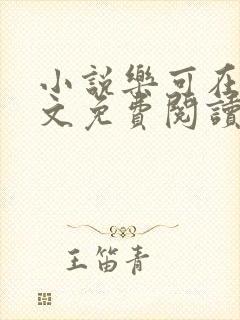 小説樂可在
文免費閱讀
王笛青